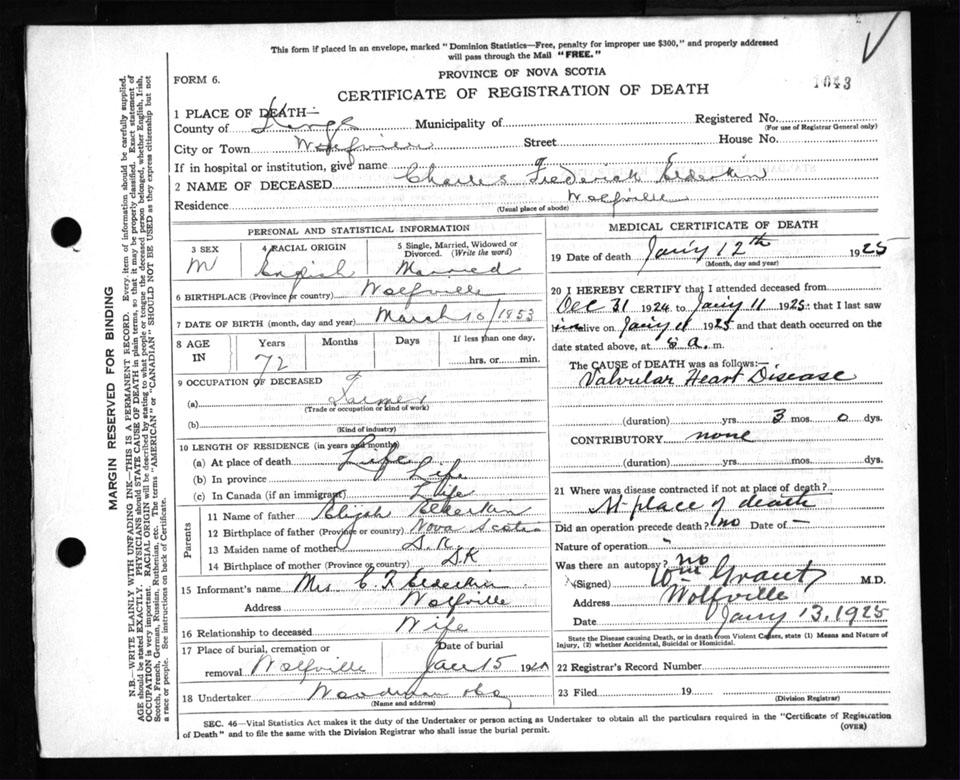 This form if placed in an envelope, marked "Dominion Statistics—Free, penalty for improper use $300," and properly addressed
will pass through the Mail "FREE."
FORM 6.
PROVINCE OF NOVA SCOTIA
1043
CERTIFICATE OF REGISTRATION OF DEATH
1 PLACE OF DEATH—
County of Kings Municipality of Registered No.
(For use of Registrar General only)
City or Town Wolfville Street House No.
If in hospital or institution, give name
2 NAME OF DECEASED Charles Frederick Elderkin
Residence Wolfville
(Usual place of abode)
PERSONAL AND STATISTICAL INFORMATION
3 SEX 4 RACIAL ORIGIN 5 Single, Married, Widowed or
Divorced. (Write the word)
M English Married
6 BIRTHPLACE (Province or country) Wolfville
7 DATE OF BIRTH (month, day and year) March 10/1853
8 AGE IN Years Months Days If less than one day,
72 hrs. or min.
9 OCCUPATION OF DECEASED
(a) Farmer
(Trade or occupation or kind of work)
(b)
(Kind of industry)
10 LENGTH OF RESIDENCE (in years and months)
(a) At place of death Life
(b) In province Life
(c) In Canada (if an immigrant) Life
Parents
11 Name of father Elijah Elderkin
12 Birthplace of father (Province or country) Nova Scotia
13 Maiden name of mother D.K.
14 Birthplace of mother (Province or country) DK
15 Informant's name Mrs C F Elderkin
Address Wolfville
16 Relationship to deceased Wife
17 Place of burial, cremation or Date of burial
removal Wolfville Jan 15 192
18 Undertaker Woodman &Co
(Name and address)
MEDICAL CERTIFICATE OF DEATH
19 Date of death Jan'y 12th 1925
(Month, day and year)
20 I HEREBY CERTIFY that I attended deceased from
Dec 31 1924 to Jan'y 11 1925: that I last saw
him alive on Jan'y 11 1925 and that death occurred on the
date stated above, at a. m.
The CAUSE of DEATH was as follows:—
Valvular Heart Disease
(duration) yrs. 3 mos. 0 dys.
CONTRIBUTORY none
(duration) yrs. mos. dys.
21 Where was disease contracted if not at place of death?
At place of death
Did an operation precede death? no Date of —
Nature of operation
Was there an autopsy? no
(Signed) Wm Grant M.D.
Address Wolfville
Date Jany 13, 1925
State the Disease causing Death, or in death from Violent Causes, state (1) Means and Nature of
Injury, (2) whether Accidental, Suicidal or Homicidal.
22 Registrar's Record Number
23 Filed 19
(Division Registrar)
SEC. 46—Vital Statistics Act makes it the duty of the Undertaker or person acting as Undertaker to obtain all the particulars required in the "Certificate of Registration
of Death" and to file the same with the Division Registrar who shall issue the burial permit. (OVER)
MARGIN RESERVED FOR BINDING
N.B.—WRITE PLAINLY WITH UNFADING INK—THIS IS A PERMANENT RECORD. Every item of information should be carefully supplied.
AGE should be stated EXACTLY. PHYSICIANS should STATE CAUSE OF DEATH in plain terms, so that it may be properly classified. Exact statement of
OCCUPATION is very important. RACIAL ORIGIN will be described by stating to what people or tongue the deceased person belonged, whether English, Irish,
Scotch, French, German, Russian, Ruthenian, etc. The terms "AMERICAN" or "CANADIAN" SHOULD NOT BE USED as they express citizenship but not
a race or people. See instructions on back of Certificate.